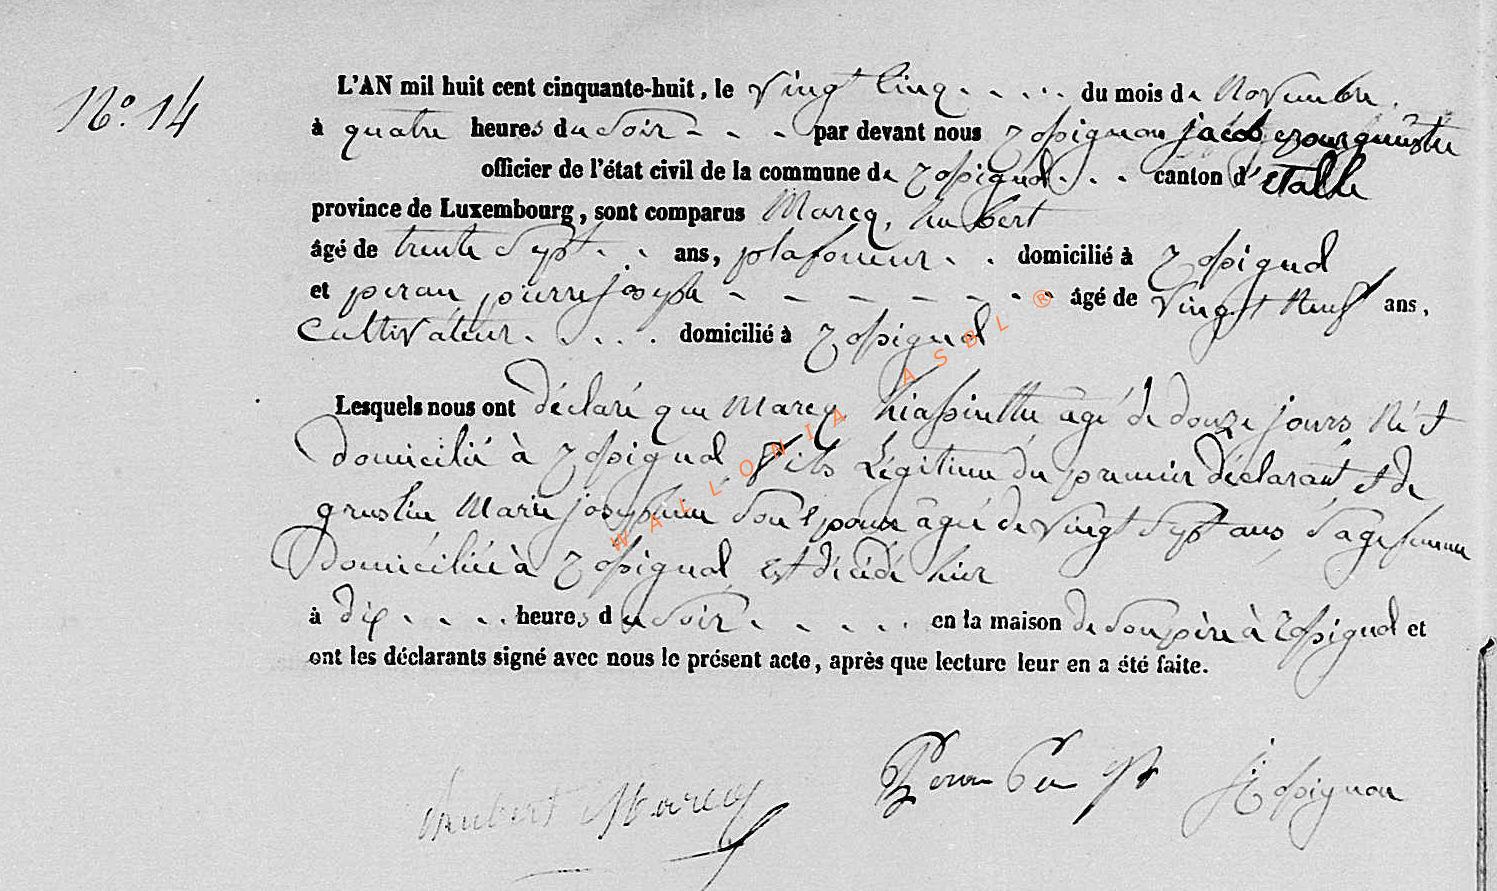 N° 14
L'AN mil huit cent cinquante-huit, le vingt cinq . . . . . du mois de Novembre .
à quatre heures du soir - - - par devant nous jacob
officier de l'état civil de la commune de . . . canton d'etalle
province de Luxembourg, sont comparus Marcq, hubert
âgé de trente sept . . ans, plafoneur . . domicilié à
et peran pierre joseph - - - - - - - âgé de vingt Neuf ans,
Cultivateur . . . . . domicilié à
Lesquels nous ont déclaré que Marcq hiassintte âgé de douze jours Né et
domicilié à fils Légitime du premier déclarant et de
gruslin Marie josephinne son épouse âgée de vingt sept ans
Domiciliée à est décédé hier
à dix . . . . heures du soir . . . . . en la maison de son père à et
ont les déclarants signé avec nous le présent acte, après que lecture leur en a été faite.
hubert Marcq
Peran
WALLONIA ASBL ®